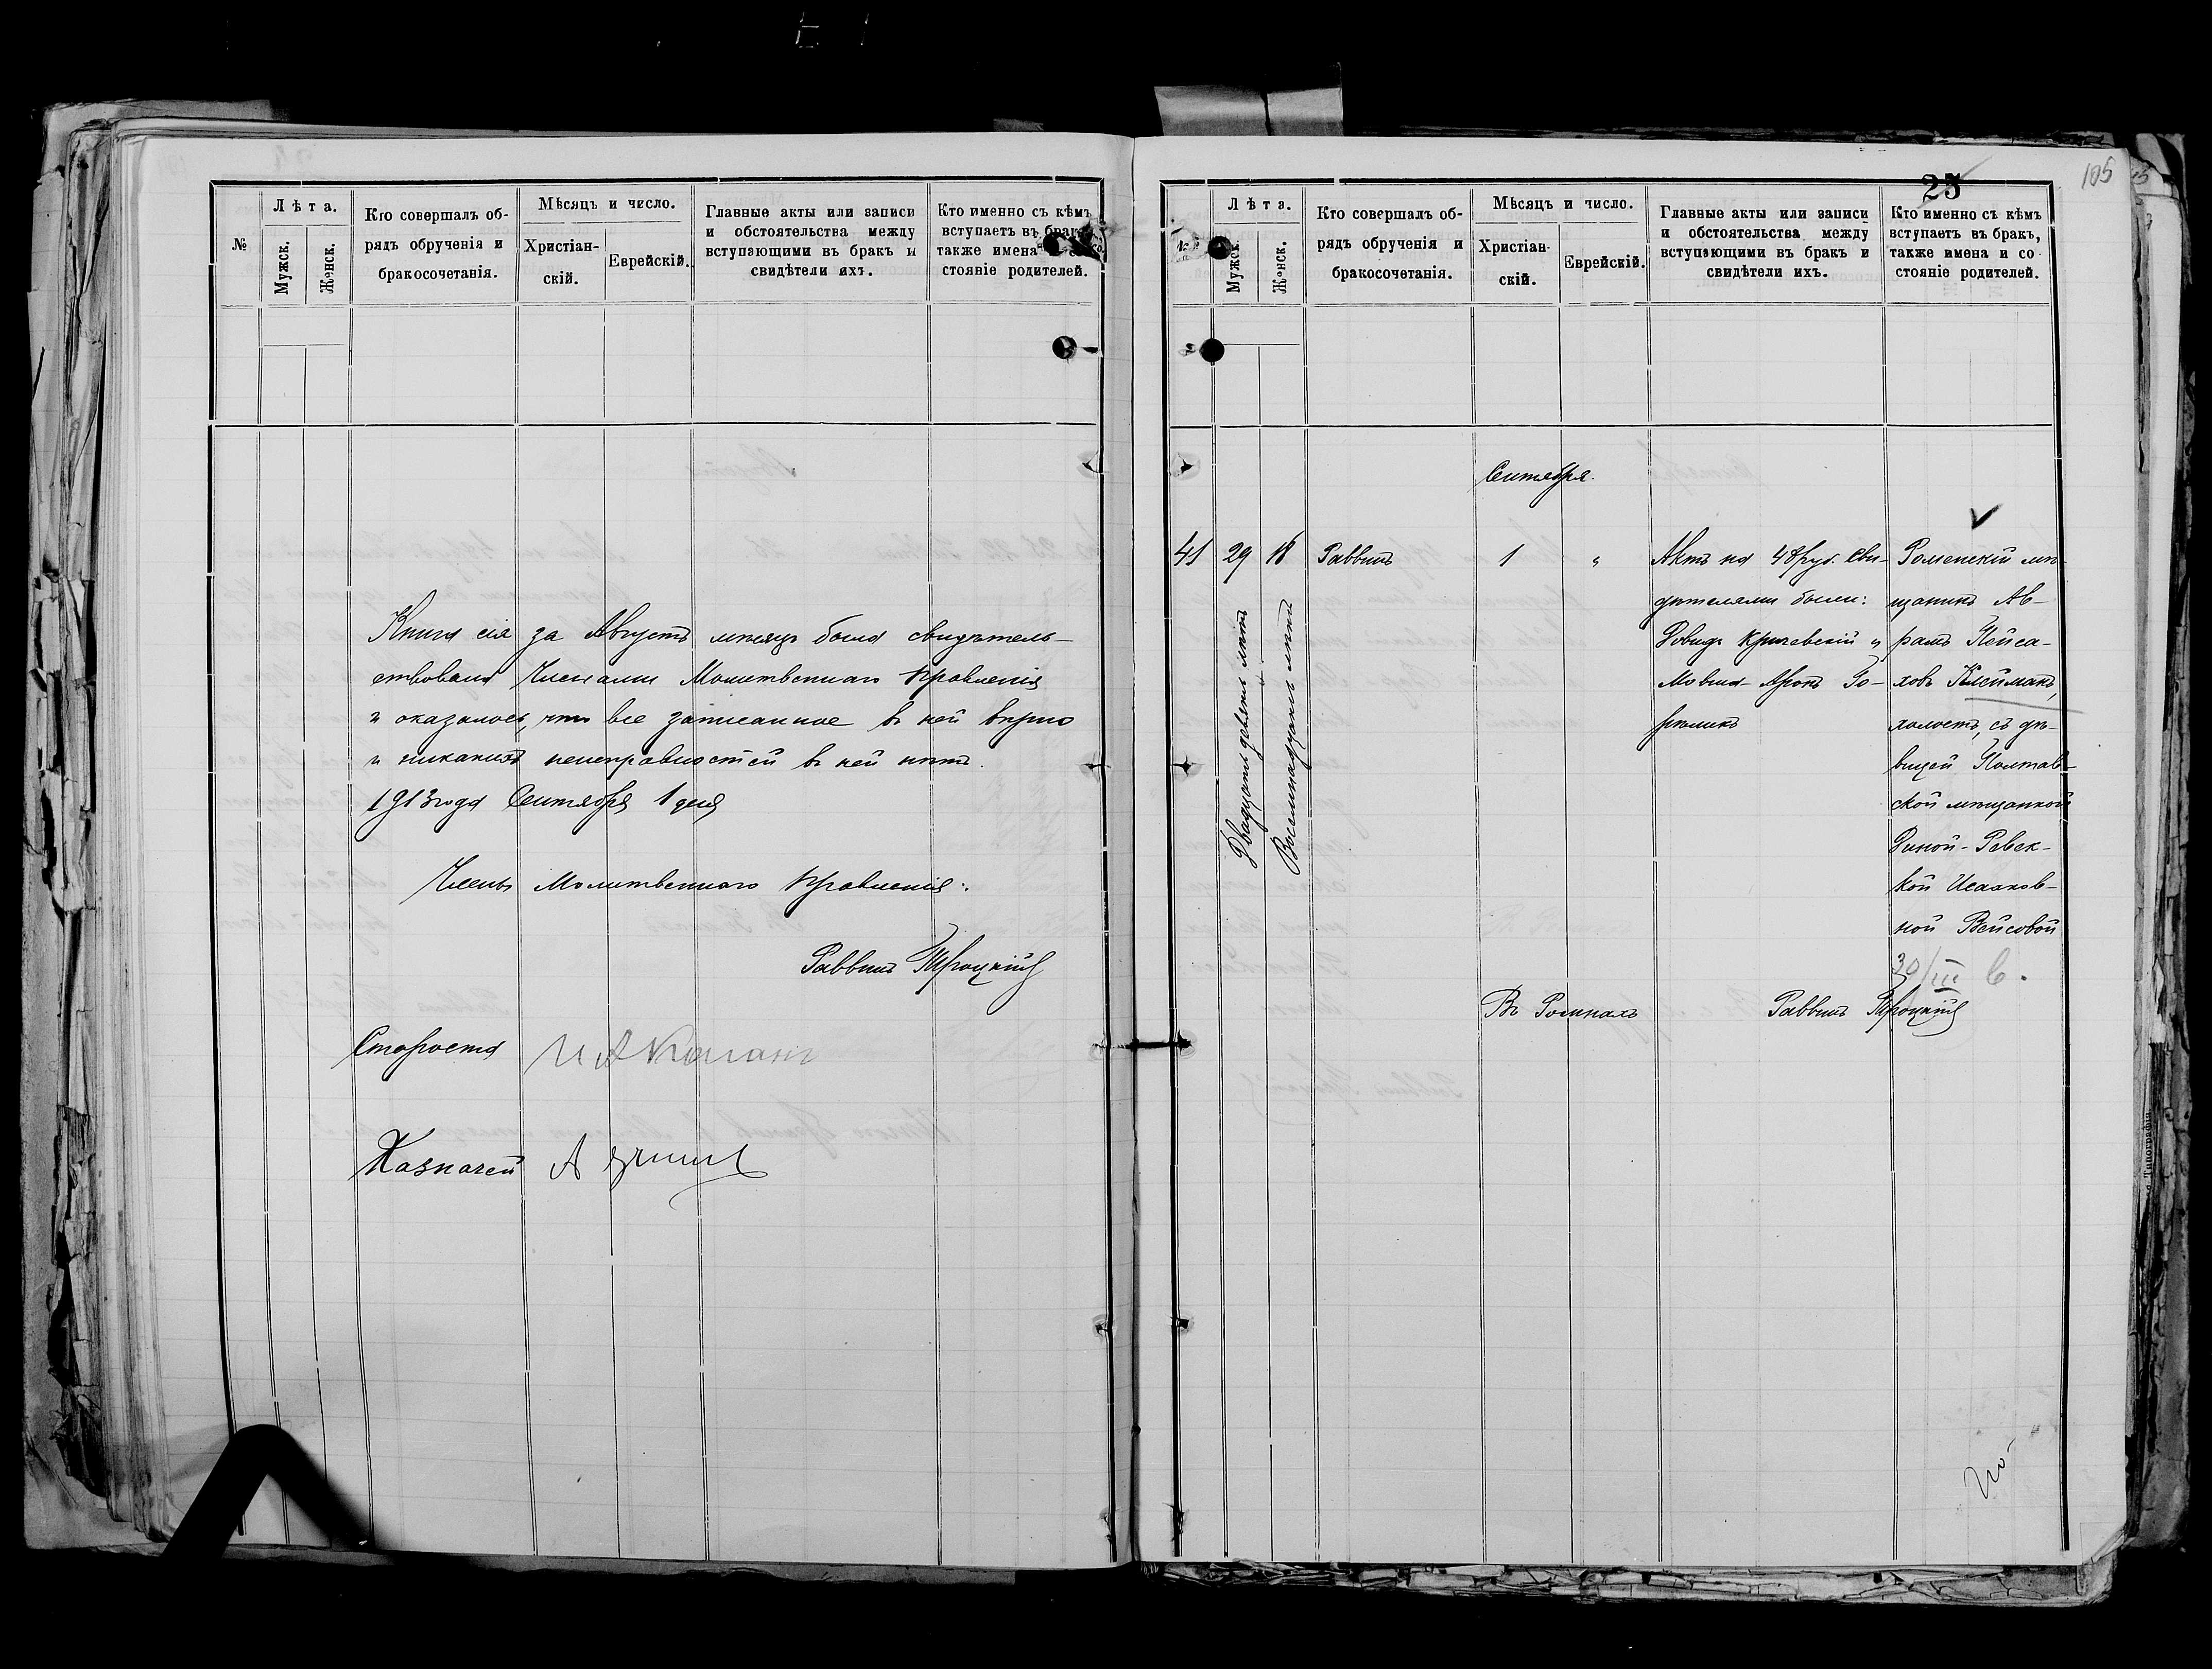 №
Лѣта.
Мужск.
Женск.
Кто совершалъ об-
рядъ обрученія и
бракосочетанія.
Мѣсяцъ и число.
Христіан-
скій.
Еврейскій.
Главные акты или записи
и обстоятельства между
вступающими въ бракъ и
свидѣтели ихъ.
Кто именно съ кѣмъ
вступаетъ въ бракъ,
также имена
стояніе родителей.
Книга сія за Августъ мѣсяцъ была свидѣтель-
ствована Членами Молитвеннаго Правленія
и оказалось, что все записанное въ ней вѣрно
и никакихъ неисправностей въ ней нѣтъ.
1913 года Сентября 1 дня
Члены Молитвеннаго Правленія:
Раввинъ Троцкій
Староста И А Каганъ
Казначей А
25
105
Лѣта.
Мужск.
Женск.
Кто совершалъ об-
рядъ обрученія и
бракосочетанія.
Мѣсяцъ и число.
Христіан-
скій.
Еврейскій.
Главные акты или записи
и обстоятельства между
вступающими въ бракъ и
свидѣтели ихъ.
Кто именно съ кѣмъ
вступаетъ въ бракъ,
также имена и со
стояніе родителей.
Сентября.
41 29 18 Раввинъ 1 „
Двадцать девять лѣтъ
Восемнадцать лѣтъ
Актъ на 48 руб. Сви-
дѣтелями были:
Довидъ Кричевскій и
Мовша-Аронъ Го-
рѣликъ
Роменскій мѣ-
щанинъ Ав-
рамъ Пейса-
ховъ Клейманъ,
холостъ, съ дѣ-
вицей Полтав-
ской мѣщанкой
Диной-Ревек-
кой Исааков-
ной Вейсовой
30/III в.
Въ Ромнахъ Раввинъ Троцкій
Типографія